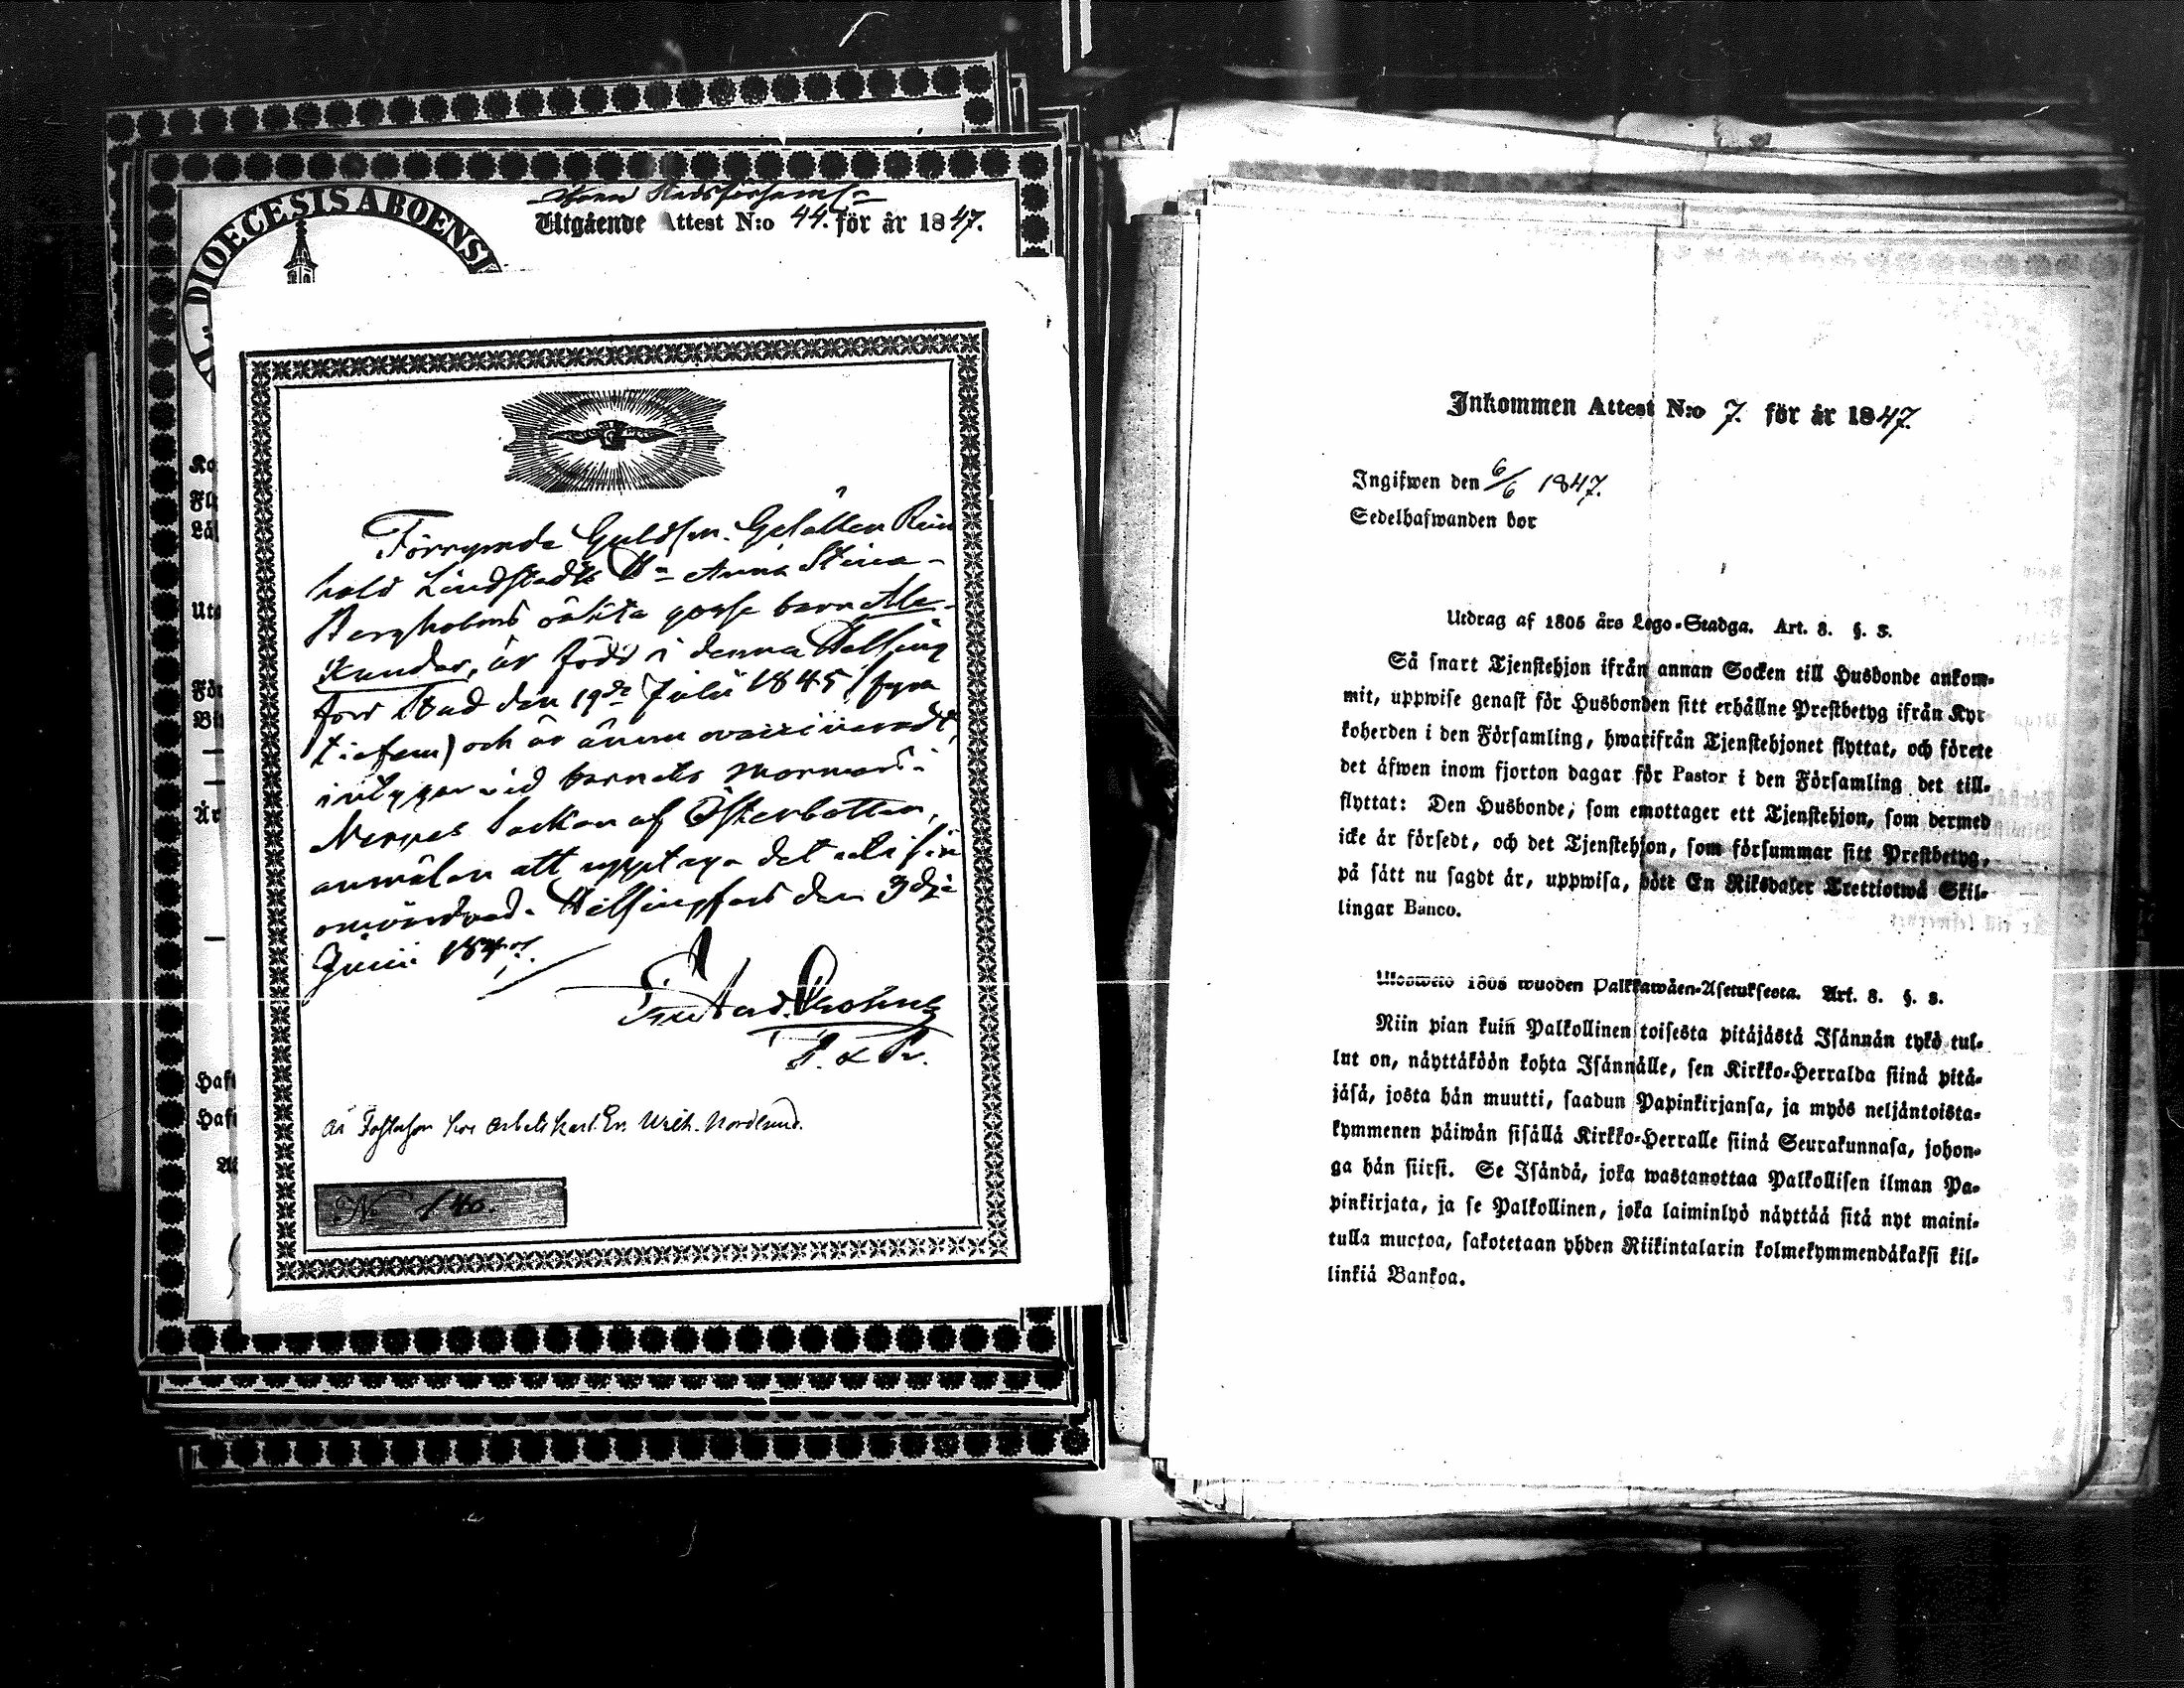 DIOECESIS ABOENSI
Utgående Attest N:o 44. för år 1847.
Förrymde Guldsm. Gesällen Rein
hold Lindstedts & Anna Stina
Bergholms oäkta gosse barn Ale-
xander, är född i denna Helsing
fors Stad den 19de Julii 1845 (fyra
tiofem) och är ännu ovaccineradt,
intygar vid barnets mormors i
Nerpes Socken af Österbotten,
anmälan att upptaga det uti sin
omvårdnad. Helsingfors den 3dje
Junii 1847.
Gustad.
P. & Pr.
är Fosterson hos arbetskarl. Er. Wilh. Nordlund.
No 140.
Inkommen Attest N:o 7. för år 1847.
Ingifwen den 6/6 1847.
Sedelhafwanden bor
Utdrag af 1805 års Lego-Stadga. Art. 8. §. 3.
Så snart Tjenstehjon ifrån annan Socken till Husbonde ankom-
mit, uppwise genast för Husbonden sitt erhållne Prestbetyg ifrån Kyr-
koherden i den Församling, hwarifrån Tjenstehjonet flyttat, och förete
det äfwen inom fjorton dagar för Pastor i den Församling det till-
flyttat: Den Husbonde, som emottager ett Tjenstehjon, som dermed
icke är försedt, och det Tjenstehjon, som försummar sitt Prestbetyg,
på sätt nu sagdt är, uppwisa, bött En Riksdaler Trettiotwå Skil-
lingar Banco.
Ulosweto 1805 wuoden Palkkawäen-Asetuksesta. Art. 8. §. 3.
Niin pian kuin Palkollinen toisesta pitäjästä Isännän tykö tul-
lut on, näyttäköön kohta Isännälle, sen Kirkko-Herralda siinä pitä-
jäsä, josta hän muutti, saadun Papinkirjansa, ja myös neljäntoista-
kymmenen päiwän sisällä Kirkko-Herralle siinä Seurakunnasa, johon-
ga hän siirsi. Se Isändä, joka wastanottaa Palkollisen ilman Pa-
pinkirjata, ja se Palkollinen, joka laiminlyö näyttää sitä nyt maini-
tulla muotoa, sakotetaan yhden Riikintalarin kolmekymmendäkaksi kil-
linkiä Bankoa.